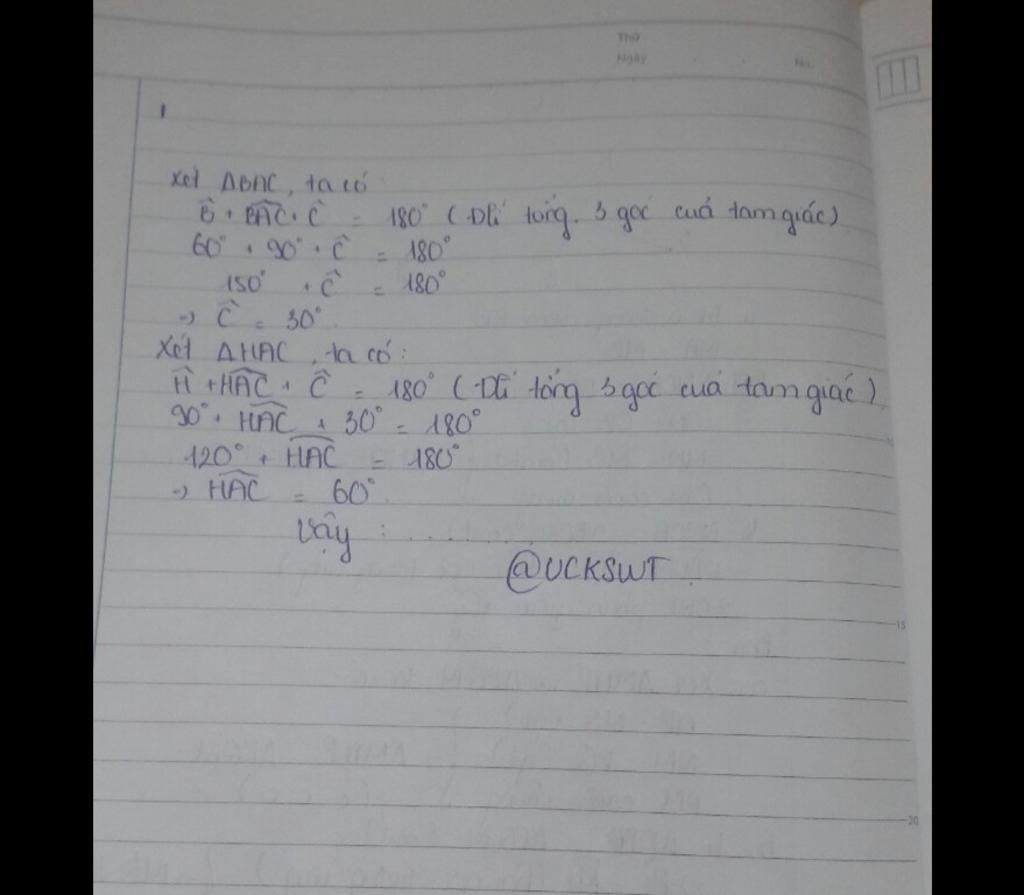 Thứ
Ngày
No.
Xét ΔBAC, ta có
B̂ + B̂AC + Ĉ = 180° (Đlí tổng. 3 góc cuả tam giác)
60° + 90° + Ĉ = 180°
150° + Ĉ = 180°
=> Ĉ = 30°
Xét ΔHAC, ta có:
Ĥ + ĤAC + Ĉ = 180° (Đlí tổng 3 góc cuả tam giác)
90° + ĤAC + 30° = 180°
120° + ĤAC = 180°
=> ĤAC = 60°
Vậy : ......
@UCKSWT
15
20